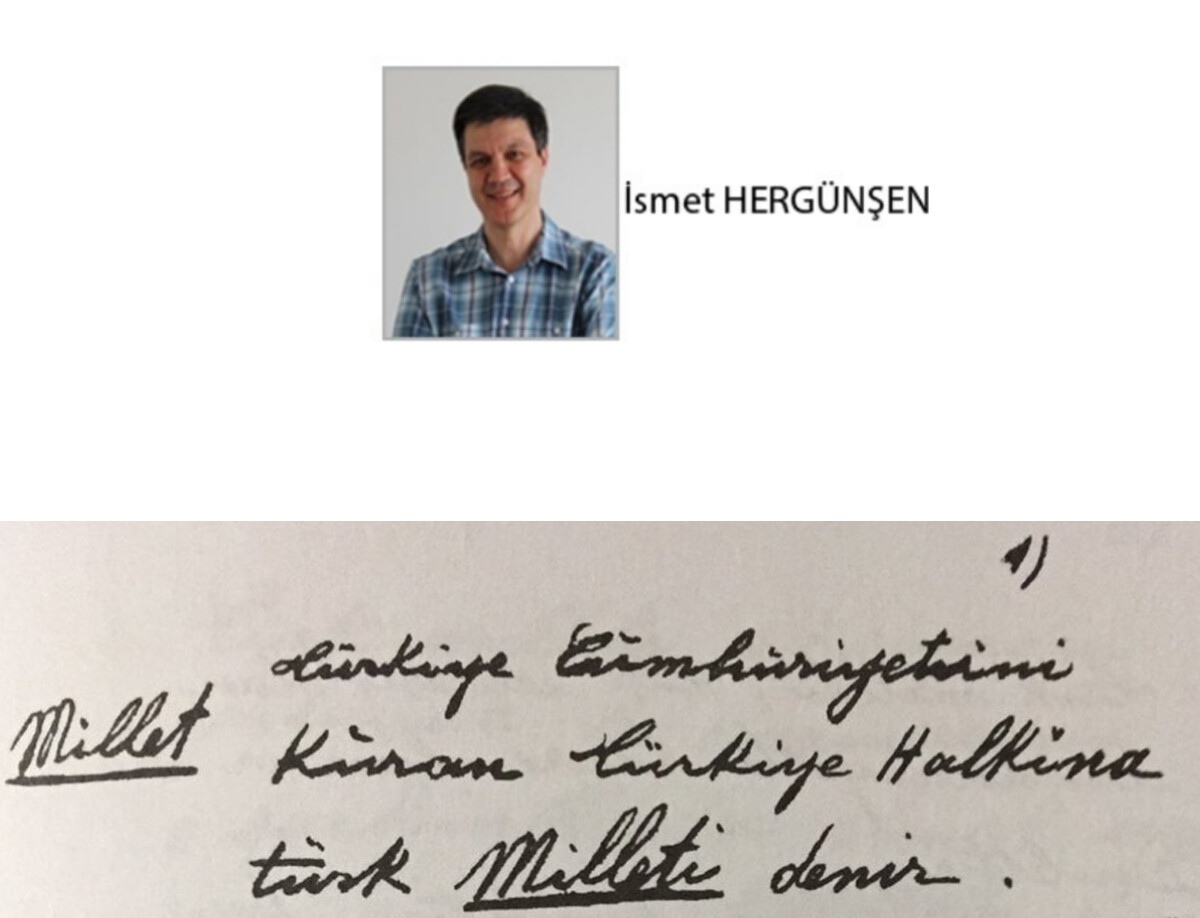 İsmet HERGÜNŞEN
1)
Türkiye Cümhüriyetini
Millet Kuran Türkiye Halkına
türk Milleti denir.